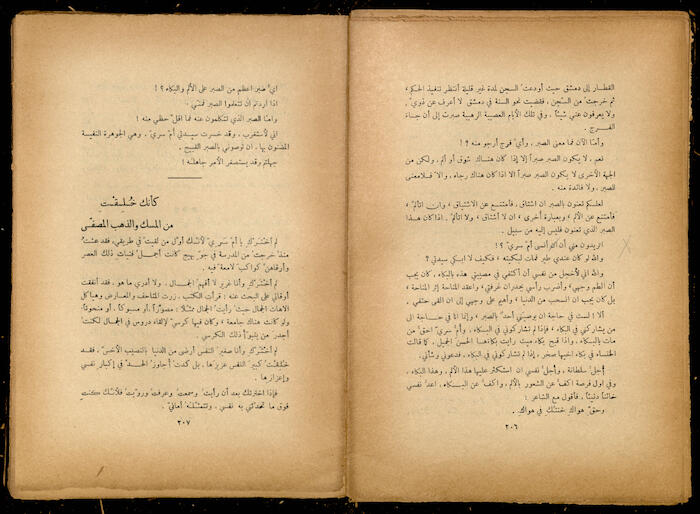 القطار إلى دمشق حيث أودعت السجن لمدة غير قليلة أنتظر تنفيذ الحكم ،
ثم خرجت من السجن ، فقضيت نحو السنة في دمشق لا أعرف عن ذويّ ،
ولا يعرفون عني شيئاً ، وفي تلك الأيام العصيبة الرهيبة صبرت إلى أن جاء
الفرج .
وأمّا الآن فما معنى الصبر ، وأيّ فرج أرجو منه ؟ !
نعم ، لا يكون الصبر صبراً إلا إذا كان هناك شوق أو ألم ، ولكن من
الجهة الأخرى لا يكون الصبر صبراً الا اذا كان هناك رجاء ، والا فلا معنى
للصبر ، ولا فائدة منه .
لعلكم تعنون بالصبر ان اشتاق ، فأمتنع عن الاشتياق ، وان اتألم ،
فأمتنع عن الألم ، وبعبارة أخرى ، ان لا أشتاق ، ولا اتألم . اذا كان هذا
الصبر الذي تعنون فليس إليه من سبيل .
اتريدون مني أن انسى أم سري ؟ !
والله لو كان عندي طير فمات لبكيته ، فكيف لا ابكي سيدتي ؟
والله اني لأخجل من نفسي أن أكتفي في مصيبتي هذه بالبكاء . كان يجب
أن الطم وجهي ، واضرب رأسي بجدران غرفتي ، واعقد المناحة إثر المناحة ،
بل كان يجب ان انسحب من الدنيا ، وأهيم على وجهي إلى ان القى حتفي .
ألا لست في حاجة ان يوصيني أحد بالصبر ، وإنما انا في حاجة الى
من يشاركني في البكاء ، فإذا لم تشاركوني في البكاء ، وأم سري احق من
مات بالبكاء ، واذا قبح بكاء ميت رأيت بكاءها الحسن الجميل ، كما قالت
الخنساء في بكاء اخيها صخر ، إذا لم تشاركوني في البكاء ، فدعوني وشأني .
أجل سلطانة ، وأجل نفسي ان استكثر عليها هذا الألم ، وهذا البكاء ،
وفي اول فرصة اكف عن الشعور بالألم ، واكف عن البكاء ، اعد نفسي
خائناً دنيئاً ، فأقول مع الشاعر :
وحق هواكِ خنتك في هواكِ .
٢٠٦
ايّ صبر اعظم من الصبر على الألم والبكاء ؟ !
اذا اردتم ان تتعلموا الصبر فمنّي .
وامّا الصبر الذي تتكلمون عنه فما اقلّ حظي منه !
اني لأستغرب ، وقد خسرت سيدتي أم سري ، وهي الجوهرة النفيسة
المضنون بها ، ان توصوني بالصبر القبيح .
جهلتم وقد يستصغر الأمر جاهله !
كأنكِ خُلِقتِ
من المسك والذهب المصفّى
لم أخترك يا أم سري لأنك أول من لقيت في طريقي ، فقد عشت
منذ خرجت من المدرسة في جو بهيج كانت أجمل فتيات ذلك العصر
وأرقاهن كواكب لامعة فيه .
لم أخترك وأنا غرير لا أفهم الجمال . ولا أدري ما هو . فقد أنفقت
أوقاتي في البحث عنه : قرأت الكتب . زرت المتاحف والمعارض وهياكل
الاهات الجمال حيث رأيت الجمال ممثلا : مصوراً ، أو مسبوكاً . أو منحوتاً .
ولو كانت هناك جامعة ، وكان فيها كرسي لإلقاء دروس في الجمال لكنت
أجدر من يتبوأ ذلك الكرسي .
لم أخترك وأنا صغير النفس أرضى من الدنيا بالنصيب الأخس . فقد
خلقت كبير النفس عزيزها . بل كدت أجاوز الحد في إكبار نفسي
وإعزازها .
فإذا اخترتك بعد أن رأيت وسمعت وعرفت ورويت فلأنك كنت
فوق ما تحدثني به نفسي . وتتمثله أمانيّ .
٢٠٧